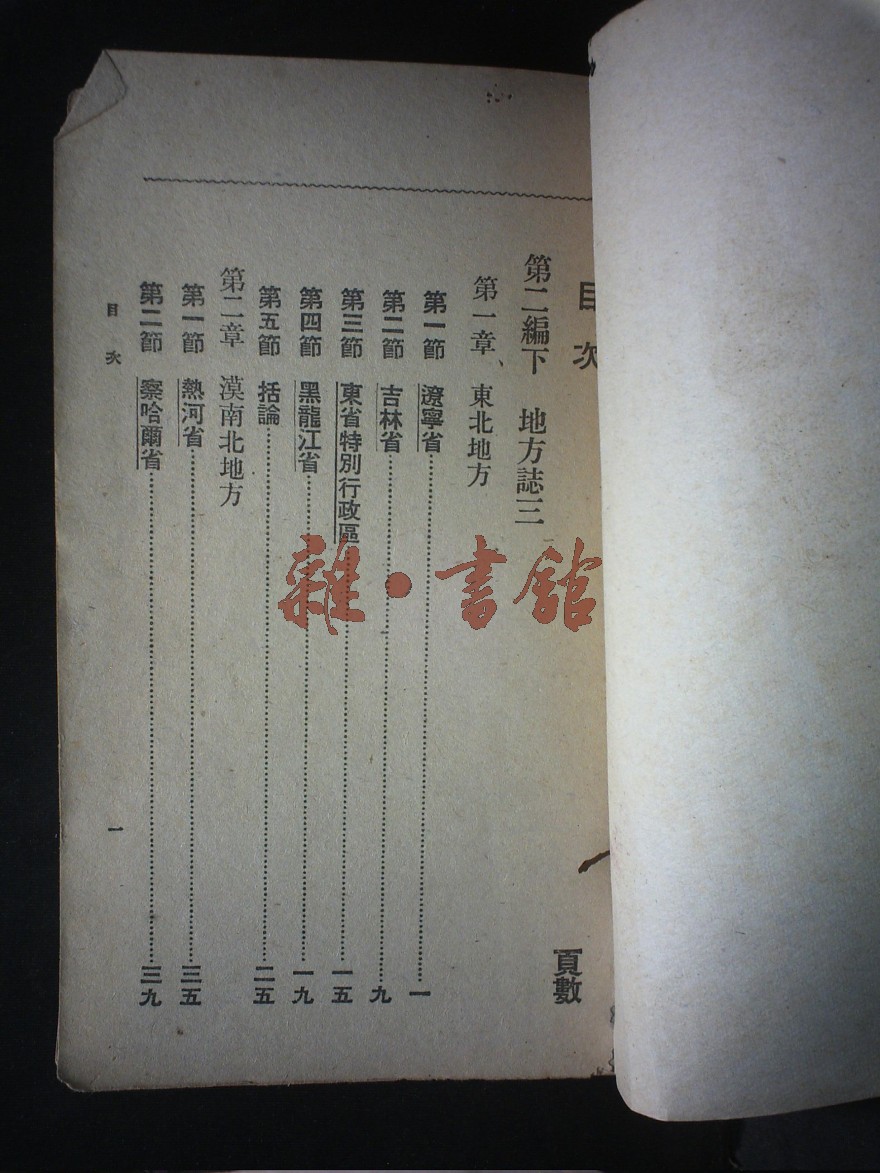 目次
頁數
第二編下 地方誌三
第一章、東北地方
第一節 遼寧省……一
第二節 吉林省……九
第三節 東省特別行政區……一五
第四節 黑龍江省……一九
第五節 括論……二五
第二章 漠南北地方
第一節 熱河省……三五
第二節 察哈爾省……三九
目次 一
雜·書館